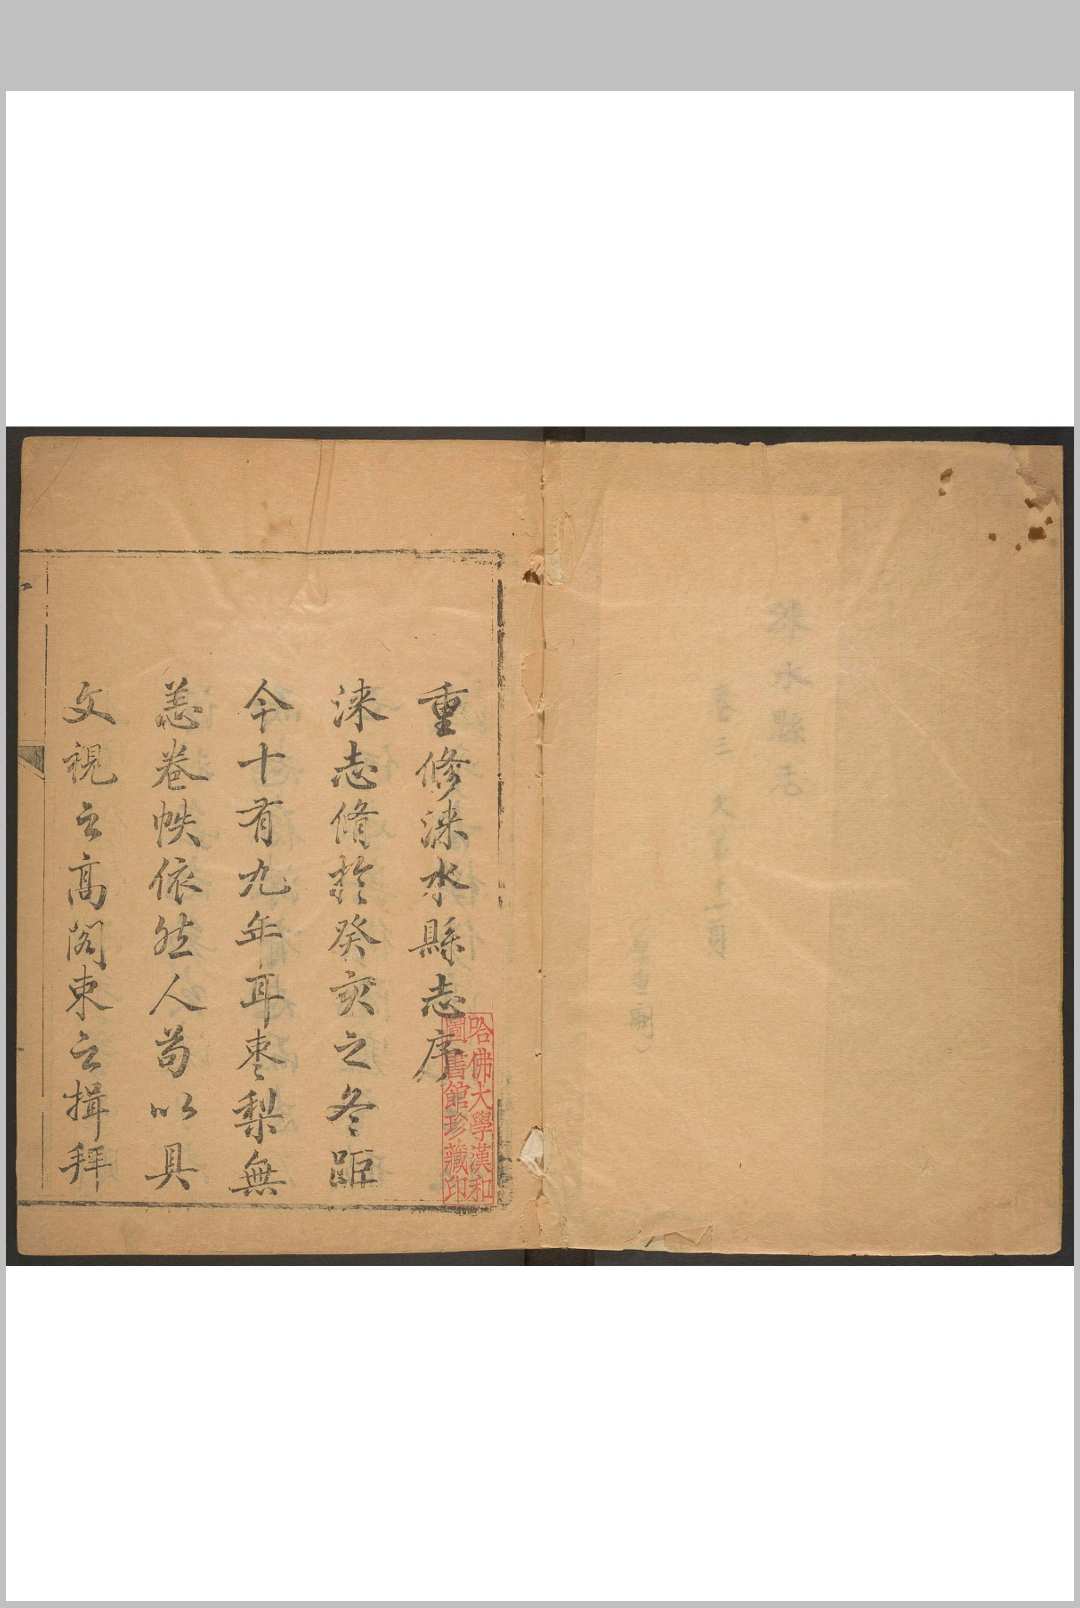 涞水縣志
卷三
重修淶水縣志序
淶志脩於癸亥之冬距
今十有九年耳枣梨無
恙卷帙依然人苟以具
文視之高阁束之揖拜
哈佛大學漢和
圖書館珍藏印